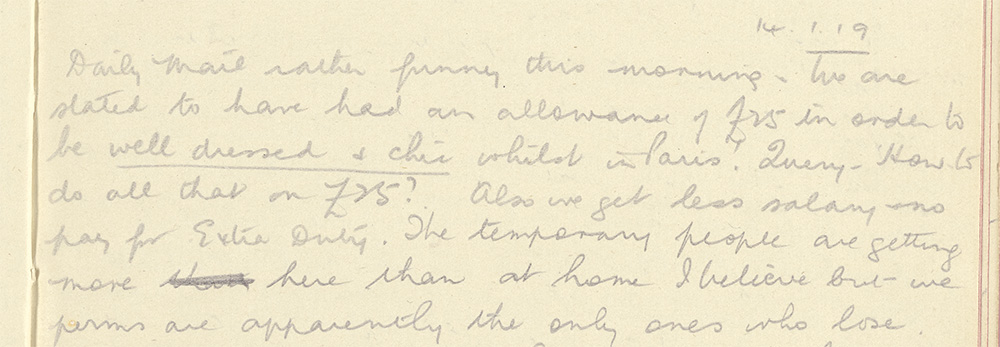 14.1.19
Daily Mail rather funney this morning - We are
stated to have had an allowance of £25 in order to
be well dressed & chic whilst in Paris! Query - How to
do all that on £25? Also we get less salary - no
pay for Extra Duty. The temporary people are getting
more than here than at home I believe but we
perms are apparently the only ones who lose.